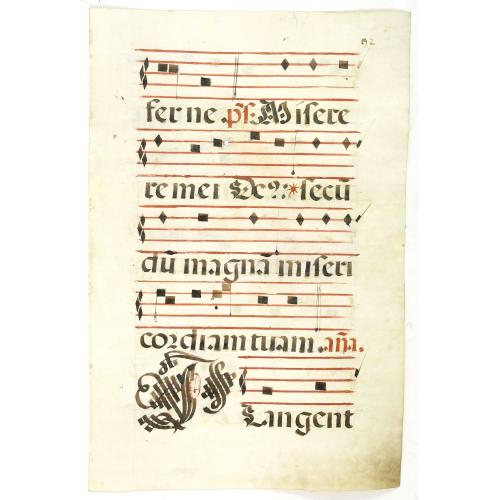 92
ferne. ps. Misere
re mei De9 * secū
dū magnā miseri
cordiam tuam. aña.
T
Tangent